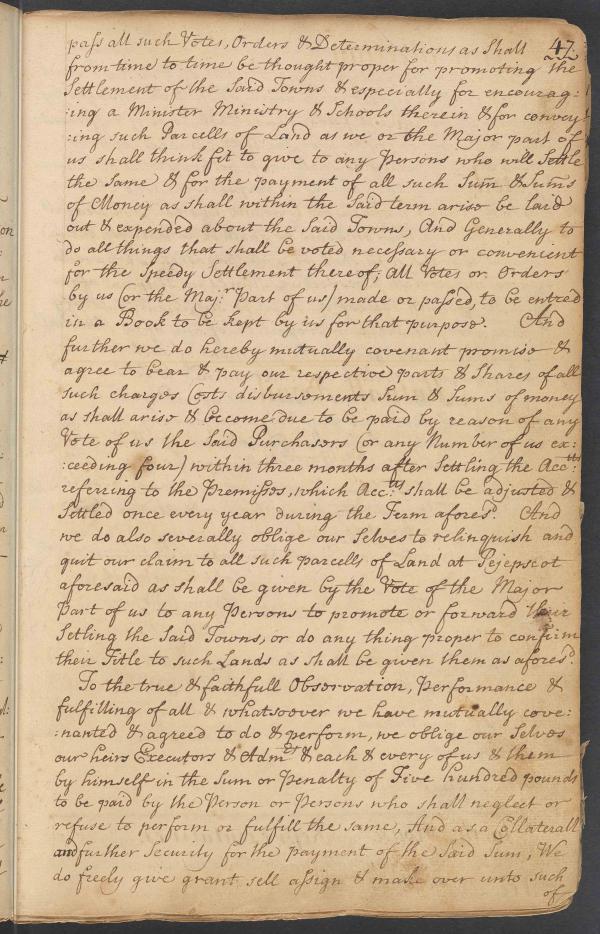 47.
pass all such Votes, Orders & Determinations as Shall
from time to time be thought proper for promoting the
Settlement of the Said Towns & especially for encourag:
:ing a Minister Ministry & Schools therein & for convey
:ing such Parcells of Land as we or the Major part of
us shall think fit to give to any Persons who will Settle
the same & for the payment of all such Sum̃ & Sum̃s
of Money as shall within the Said term arise be laid
out & expended about the Said Towns, And Generally to
do all things that shall be voted necessary or convenient
for the Speedy Settlement thereof; All Votes or Orders
by us (or the Maj:r Part of us) made or passed, to be entred
in a Book to be kept by us for that purpose. And
further we do hereby mutually covenant promise &
agree to bear & pay our respective parts & Shares of all
such charges Costs disbursements Sum & Sums of money
as shall arise & become due to be paid by reason of any
Vote of us the Said Purchasers (or any Number of us ex:
:ceeding four) within three months after Settling the Acc:tts
referring to the Premisses, which Acc:tts shall be adjusted &
Settled once every year during the Term afores:d And
we do also severally oblige our Selves to relinquish and
quit our claim to all such parcells of Land at Pejepscot
aforesaid as shall be given by the Vote of the Major
Part of us to any Persons to promote or forward their
Setling the Said Towns, or do any thing proper to confirm
their Title to such Lands as shall be given them as afores:d
To the true & faithfull Observation, Performance &
fulfilling of all & whatsoever we have mutually cove:
:nanted & agreed to do & perform, we oblige our Selves
our heirs Executors & Adm:rs & each & every of us & them
by himself in the Sum or Penalty of Five hundred pounds
to be paid by the Person or Persons who shall neglect or
refuse to perform or fulfill the same, And as a Collaterall
and further Security for the payment of the Said Sum, We
do freely give grant sell assign & make over unto such
of